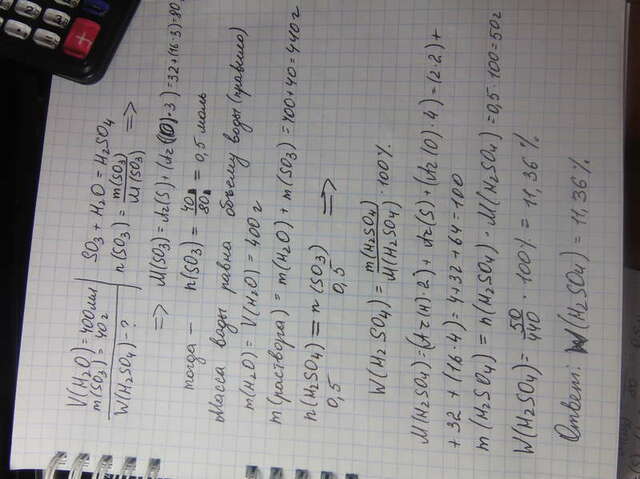 V(H₂O)=400мл
m(SO₃)=40г
W(H₂SO₄)-?
SO₃ + H₂O = H₂SO₄
n(SO₃) = m(SO₃)/M(SO₃) =>
=> M(SO₃)=Ar(S)+(Ar(O)·3)=32+(16·3)=80
тогда — n(SO₃) = 40г/80г = 0,5 моль
Масса воды равна объёму воды (правило)
m(H₂O) = V(H₂O) = 400 г
m(раствора) = m(H₂O) + m(SO₃) = 400+40=440г
n(H₂SO₄) = n(SO₃) =>
0,5 0,5
W(H₂SO₄) = m(H₂SO₄)/M(H₂SO₄) · 100%
M(H₂SO₄)=(Ar(H)·2)+Ar(S)+(Ar(O)·4)=(2·2)+
+32+(16·4)=4+32+64=100
m(H₂SO₄) = n(H₂SO₄) · M(H₂SO₄)=0,5·100=50г
W(H₂SO₄)= 50/440 · 100% = 11,36%
Ответ: W(H₂SO₄) = 11,36%